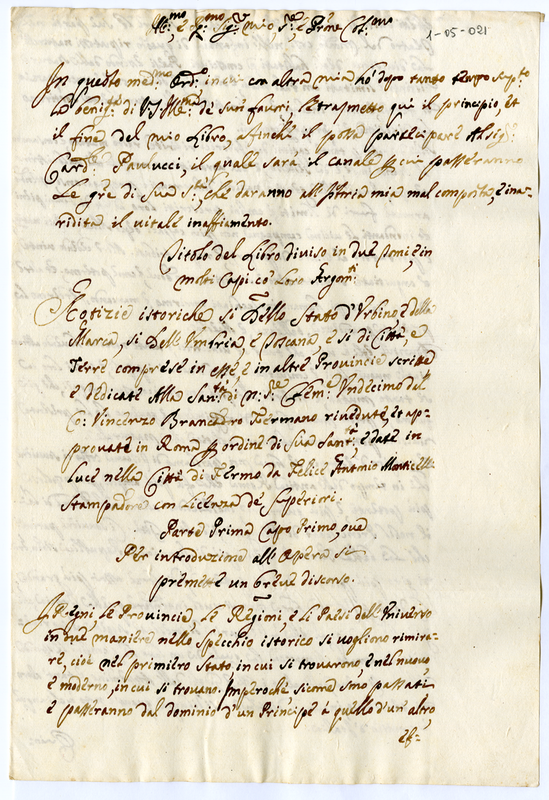 Ill:mo e R:mo Sig:r mio Sig:r e Prone Col:mo
1-05-021
In questo med:mo Ord:o, in cui con altra mia hò dopo tanto tempo
la benig:tà di V:S:Ill:ma de suoi favori, le trasmetto qui il principio, et
il fine del mio Libro, affinchè il possa participare
Card:le Paulucci, il quale sarà il canale per cui passeranno
le gre di Sua S:tà, che daranno all' mia mal composta, e ina-
ridita il vitale inaffiamento.
Titolo del Libro diviso in due Tomi, e in
molti Capi co' loro Argom:ti
Notizie istoriche sì dello Stato d'Urbino e della
Marca, sì dell'Umbria, e Toscana, e sì di Città, e
Terre comprese in esse e in altre Provincie scritte
e dedicate alla San:tà di N:S:re Clem:e Undecimo dal
Co: Vincenzo Fermano rivedute, et ap-
provate in Roma per ordine di Sua Sant:tà, e date in
luce nella Città di Fermo da Felice Antonio Monticelli
Stampadore con licenza de' Superiori.
Parte Prima Capo Primo, ove
Per introduzione all'Opera si
premette un breve discorso.
I Regni, le Provincie, le Regioni e li Paesi dell'Universo
in due maniere nello specchio istorico si vogliono rimira-
re, cioè nel primiero Stato in cui si trovarono, e nel nuovo
e moderno, in cui si trovano. Imperochè siccome sono passati
e passeranno dal dominio d'un Principe à quello d'un altro,